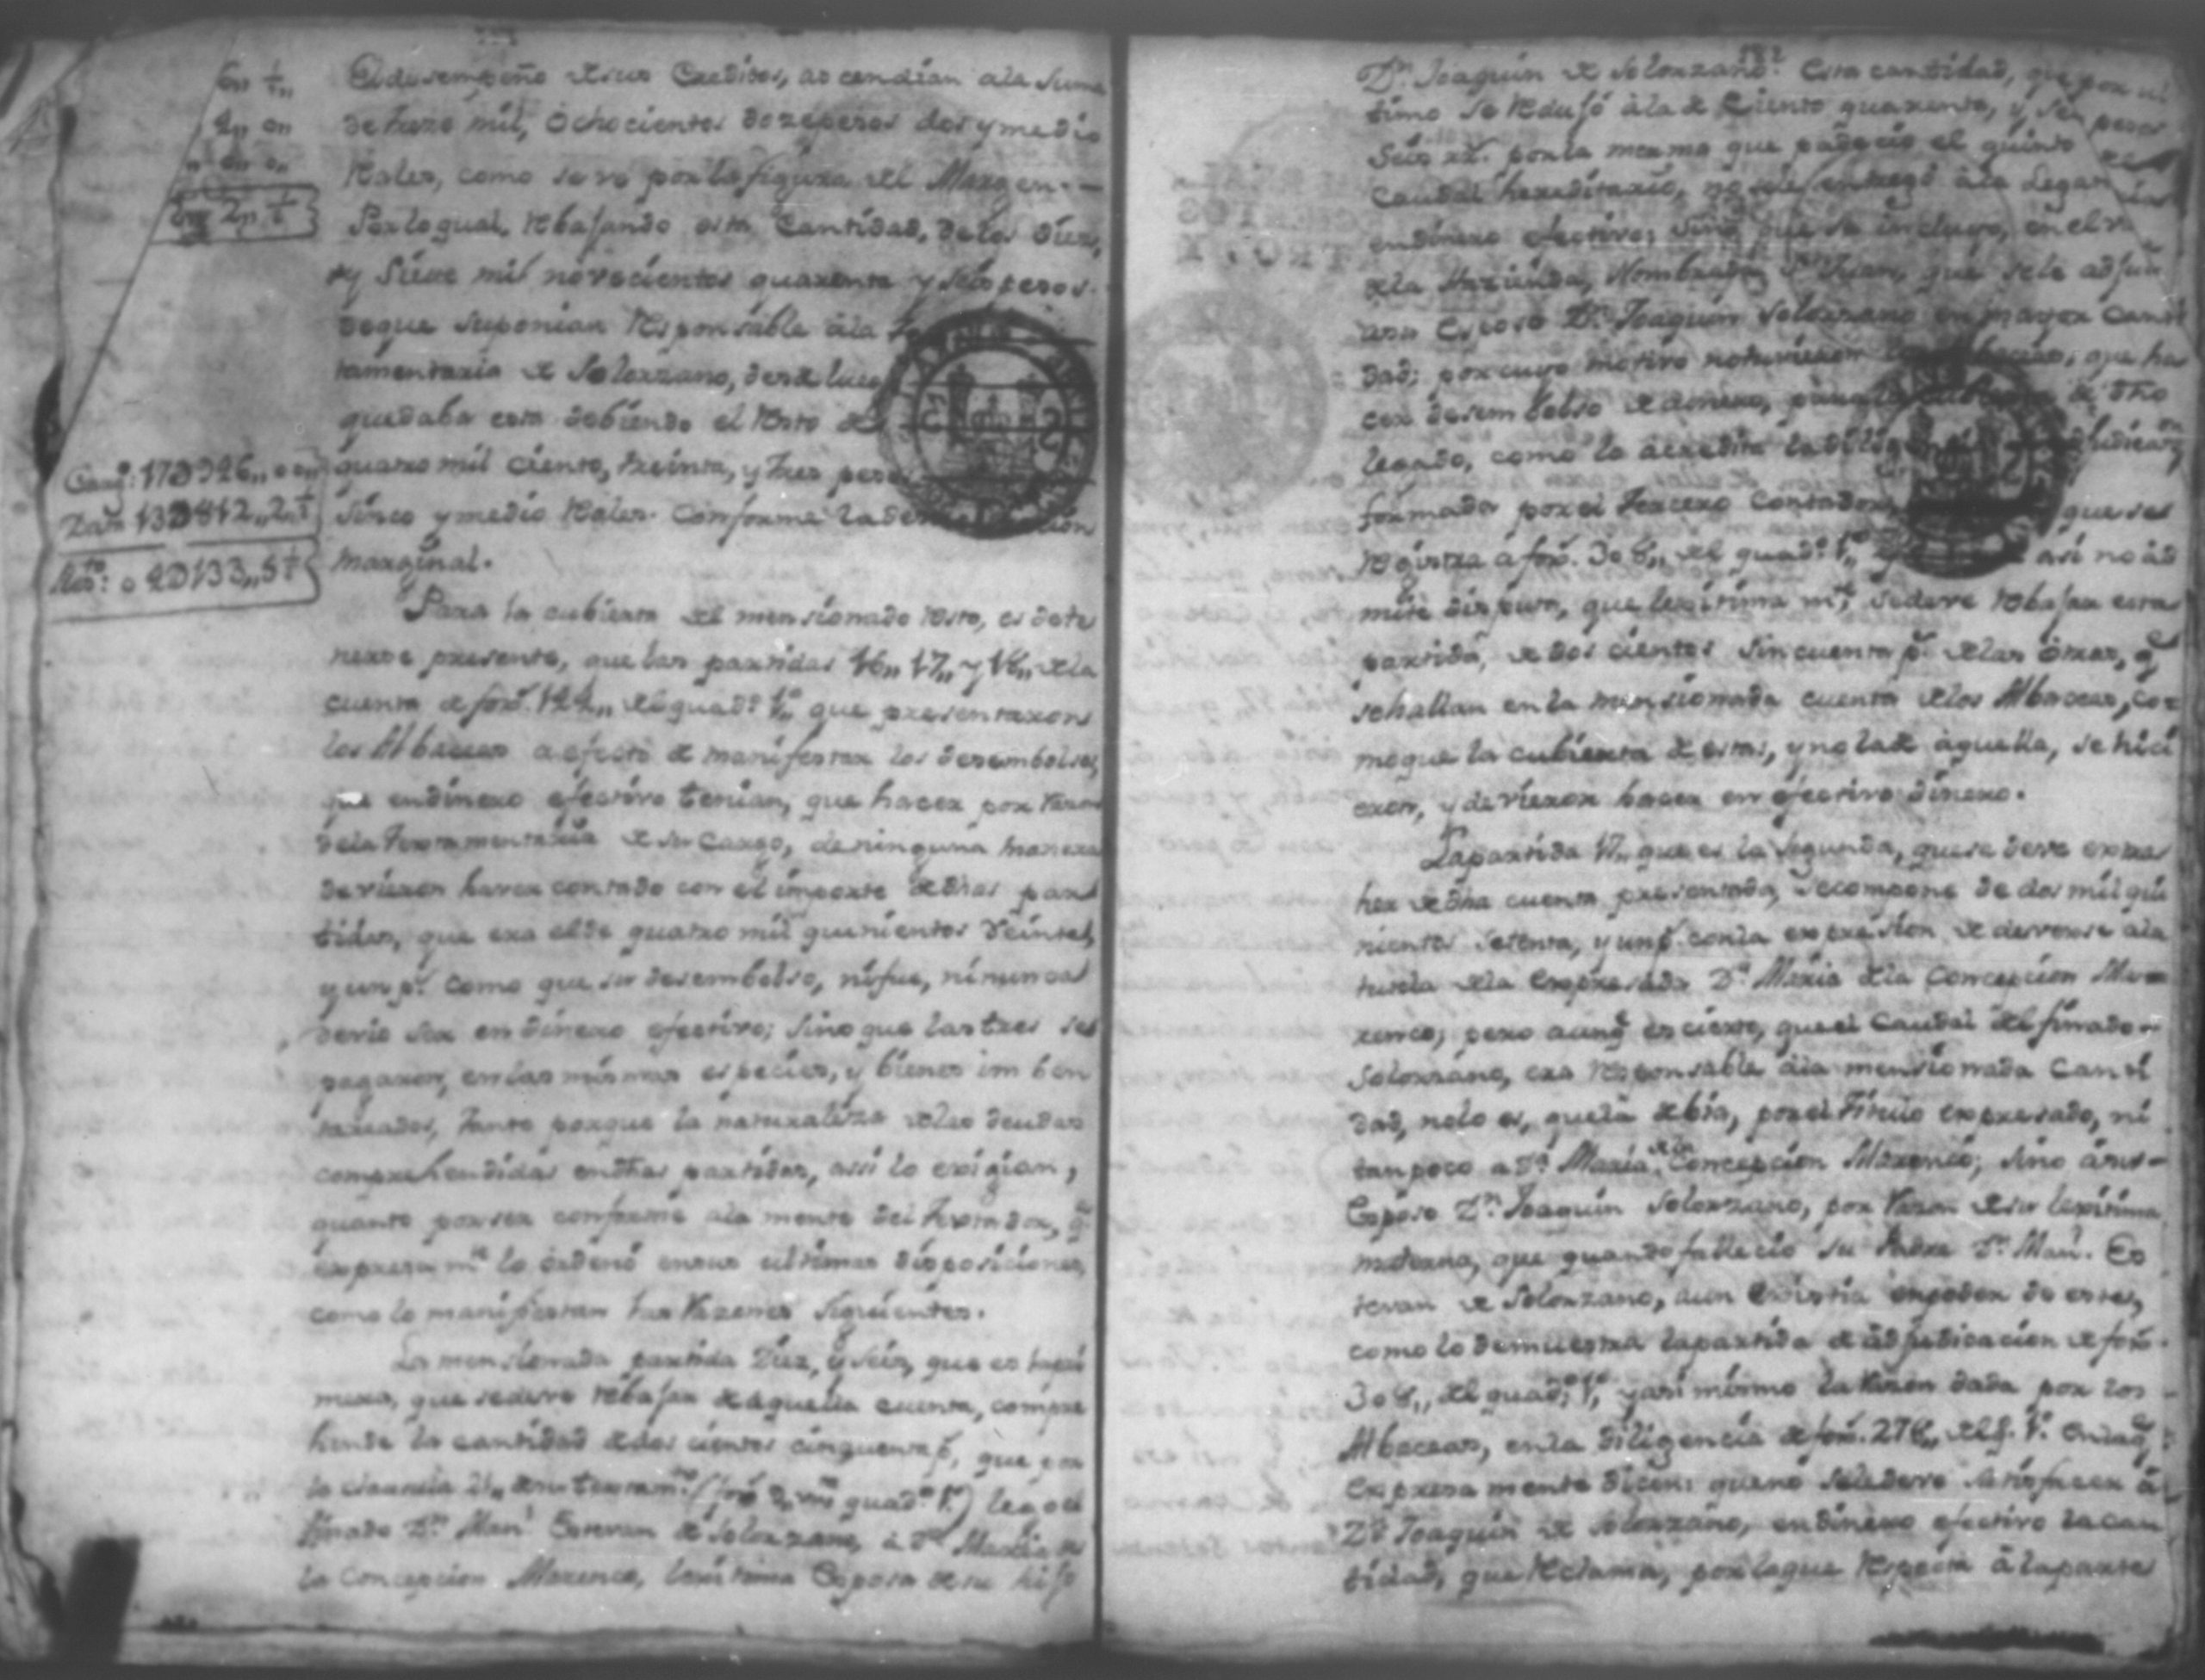 El desempeño de sus Creditos, ascendian ala Suma
de treze mil, Ochocientos doze pesos dos y medio
Rales, como se ve por la figura del Margen.
Por lo qual, rebajando esta Cantidad, de los diez,
y Siete mil novecientos quarenta y seis pesos.
de que suponian responsable à la
tamentaria de Solorzano, desde lue
quedaba esta debiendo el resto de
quatro mil ciento, treinta, y tres pes
Sinco y medio Rales. Conforme la de
marginal.
Carg.: 17D926,,
13D812,,2 ½
4D133,,5 ½
Para la cubierta del mensionado resto, es dete
nerse presente, que las partidas 16,, 17,, y 18,, de la
cuenta de fox. 122,, del quad.º 1.º que presentaron
los Albaceas a efecto de manifestar los desembolsos,
que en dinero efectivo tenian, que hacer por razon
de la Testamentaria de su Cargo, de ninguna manera
devieron haver contado con el importe de dhas par
tidas, que era el de quatro mil quinientos veinte,
y un p.s como que su desembolso, ni fue, ni nunca
devio ser en dinero efectivo; Sino que las tres se
pagaron, en las mismas especies, y bienes imben
tariados, tanto porque la naturaleza de las deudas
comprehendidas en dhas partidas, assi lo exigian,
quanto por ser conforme ala mente del Testador, q.e
expresam.te lo ordenó en sus ultimas disposiciones,
como lo manifiestan las Razones Siguientes.
La mensionada partida Diez, y Seis, que es la pri
mera, que se deve rebajar de aquella cuenta, compre
hende la cantidad de dos cientos cinquenta p.s, que por
la clausula 21,, de su testam.to quad.º 1.º) legó el
finado D.n Man.l Estevan de Solorzano, à D.a Maria de
la Concepcion Marenco, lexitima Esposa de su hijo
D.n Joaquin de Solorzano. Esta cantidad, que por ul
timo se redujo à la de Ciento quarenta, y seis pesos
Seis rr.s por la merma que padecio el quinto
Caudal hereditario, no se le entregó à la Legataria
en dinero efectivo; Sino que se incluyo, en el
de la Hazienda, Nombrada S.n Juan, que se le adju
asu Esposo D.n Joaquin Solorzano en mayor Canti
dad; por cuyo motivo no tuvieron que ha
cer desembolso de dinero, para de dho
legado, como lo acredita la diligen
formada por el Tercero Contador que se
registra à fox. 308,, del quad.º 1.º así no ad
mite disputa, que lexitima m.te se deve rebajar esta
partida, de dos cientos Sincuenta p.s de las otras, q.e
se hallan en la mensionada cuenta de los Albaceas, co
mo que la cubierta de estas, y no la de aquella, se hici
eron, y devieron hacer en efectivo dinero.
La partida 17,, que es la Segunda, que se deve extra
her de dha cuenta presentada, se compone de dos mil qui
nientos Setenta, y un p.s con la expresion de deverse ala
tutela de la Expresada D.a Maria de la Concepcion Ma
renco; pero aunq.e es cierto, que el Caudal del finado
Solorzano, era responsable à la mensionada Canti
dad, no lo es, que la debia, por el Titulo expresado, ni
tampoco a D.a Maria de la Concepcion Marenco; Sino à su
Esposo D.n Joaquin Solorzano, por Razon de su lexitima
materna, que quando fallecio su Padre D.n Man.l Es
tevan de Solorzano, aun Existia en poder de este,
como lo demuestra la partida de adjudicacion de fox.
308,, del quad.º 1.º, y asi mismo la Razon dada por los
Albaceas, en la diligencia de fox. 278,, del q. 1.º En la q.e
Expresa mente dicen: que no se le deve Satisfacer à
D.n Joaquin de Solorzano, en dinero efectivo la can
tidad, que reclama, por lo que respecta à la parte